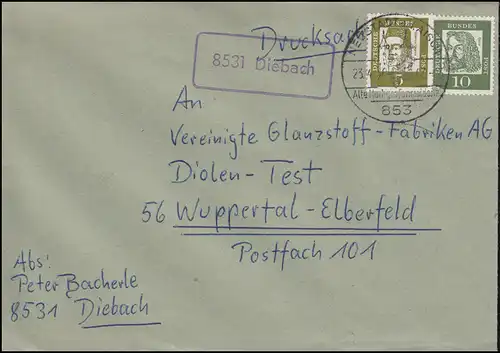 Drucksache
8531 Diebach
DEUTSCHE BUNDESPOST
5
DEUTSCHE BUNDESPOST
10
853
An
Vereinigte Glanzstoff-Fabriken AG
Diolen-Test
56 Wuppertal-Elberfeld
Postfach 101
Abs:
Peter Bacherle
8531 Diebach